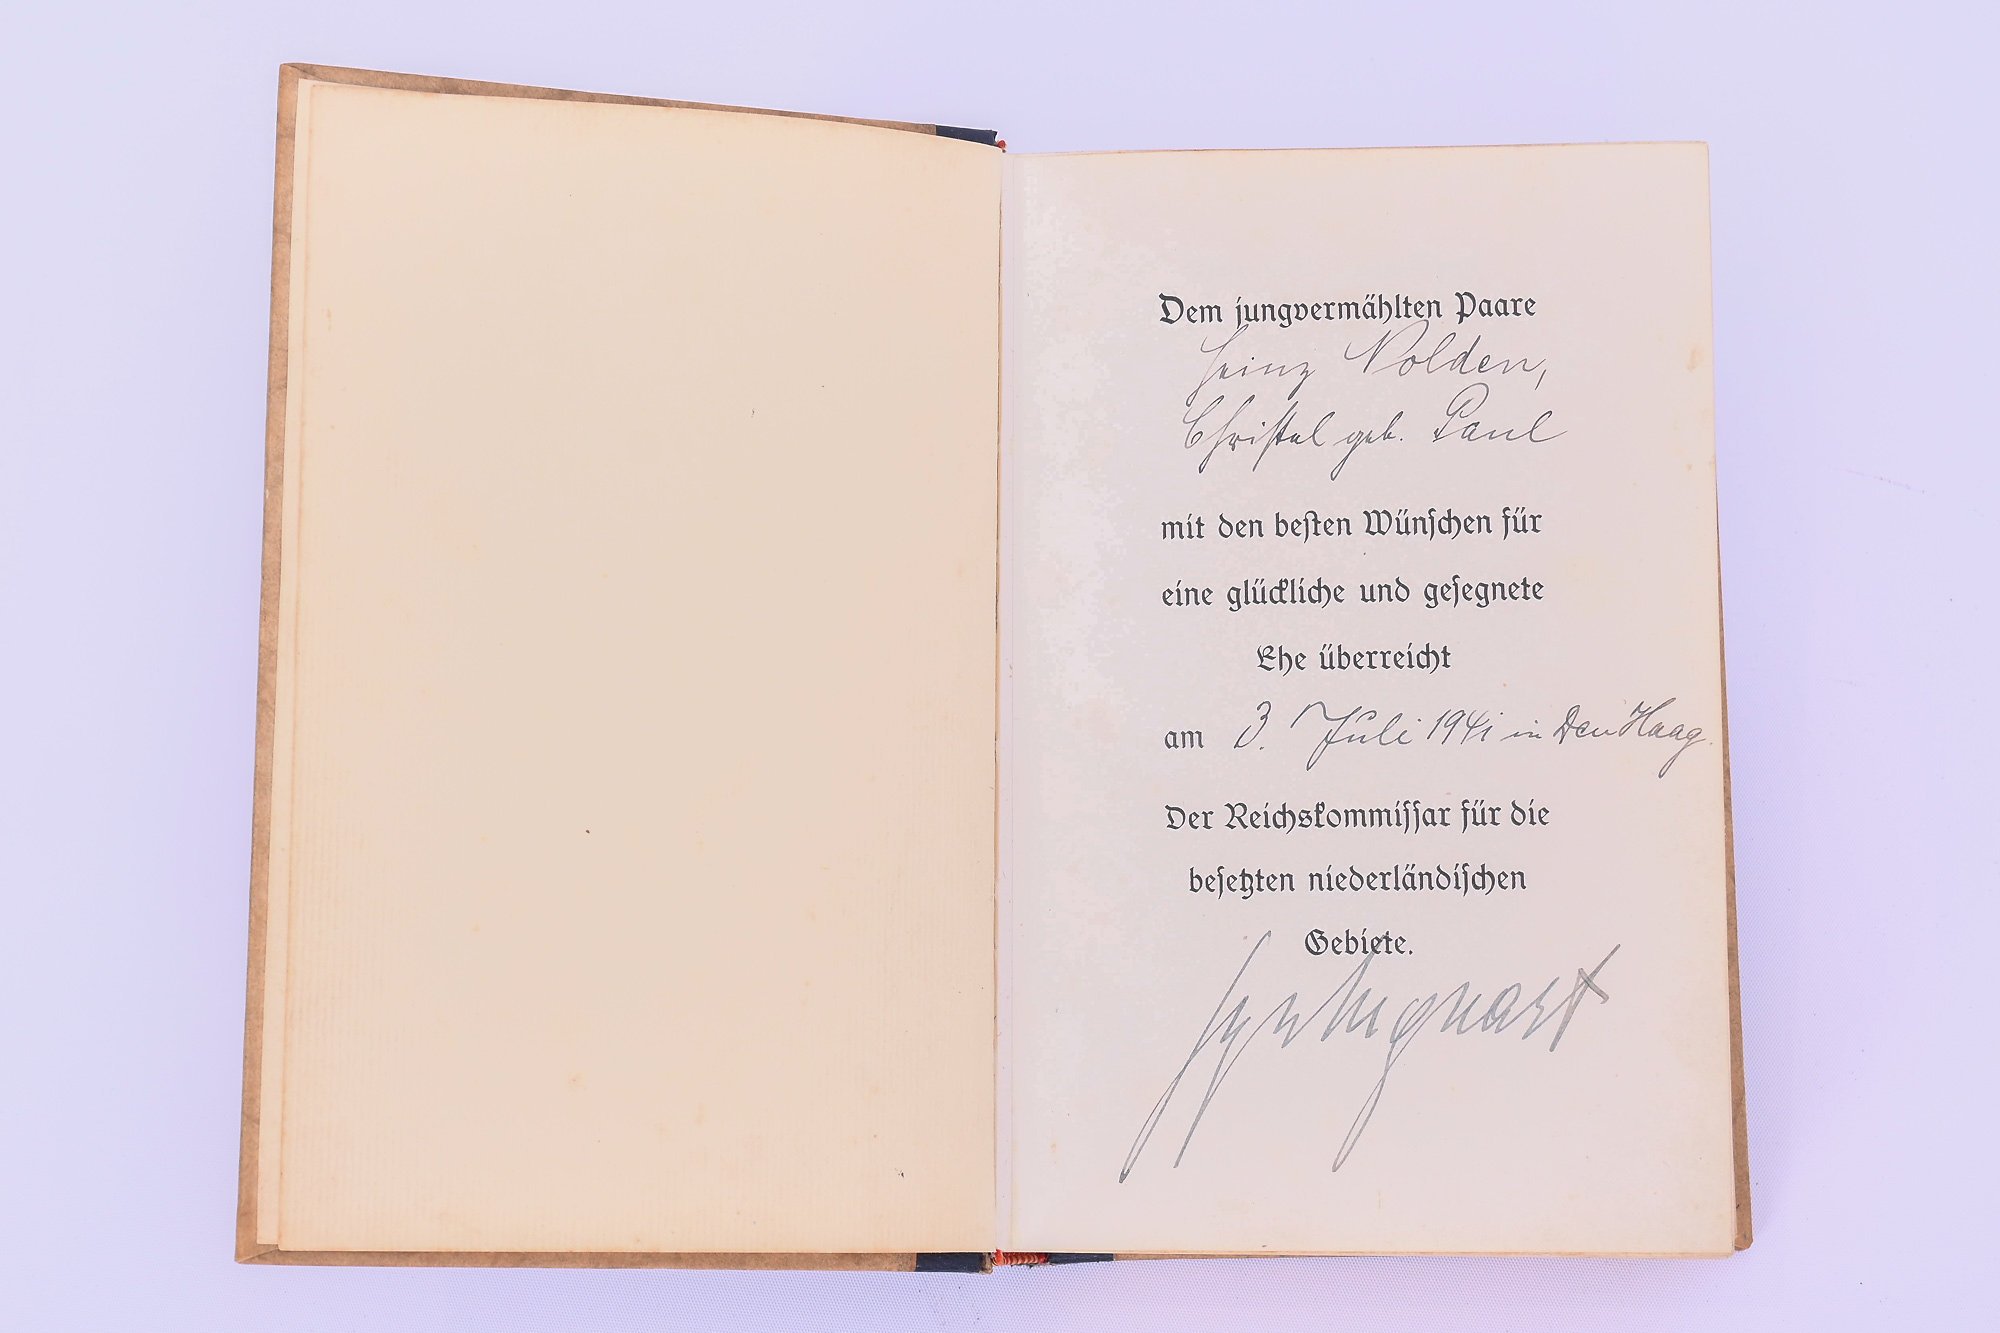 Dem jungvermählten Paare
Heinz Nolden,
Christel geb. Paul
mit den besten Wünschen für
eine glückliche und gesegnete
Ehe überreicht
am 3. Juli 1941 in Den Haag.
Der Reichskommissar für die
besetzten niederländischen
Gebiete.